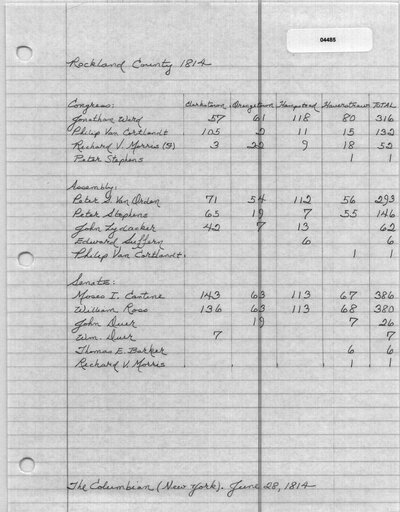 04485
Rockland County 1814
Congress: Clarkstown Orangetown Hampstead Haverstraw TOTAL
Jonathan Ward 57 61 118 80 316
Philip Van Cortlandt 105 2 11 15 132
Richard V. Morris 3 22 9 18 52
Peter Stephens 1 1
Assembly:
Peter S. Van Orden 71 54 112 56 293
Peter Stephens 65 19 7 55 146
John Lydacker 42 7 13 62
Edward Suffern 6 6
Philip Van Cortlandt. 1 1
Senate:
Moses I. Cantine 143 63 113 67 386
William Ross 136 63 113 68 380
John Duer 19 7 26
Wm. Duer 7 7
Thomas E. Barker 6 6
Richard V. Morris 1 1
The Columbian (New York). June 28, 1814